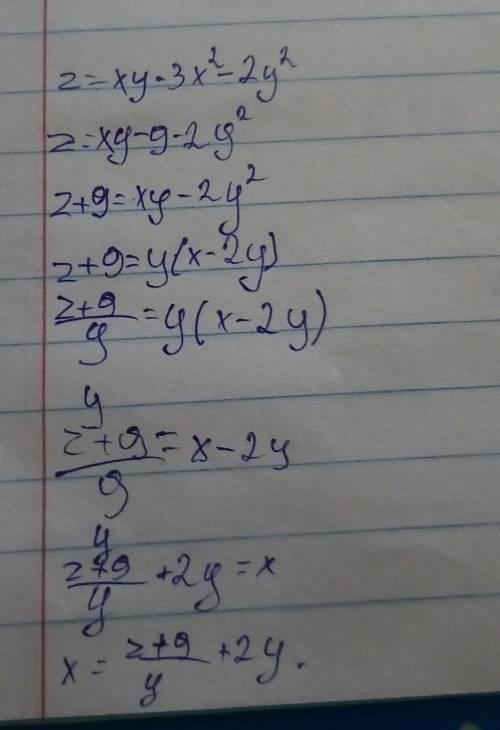 z=xy-3x²-2y²
z=xy-9-2y²
z+9=xy-2y²
z+9=y(x-2y)
z+9/y=y(x-2y)
y
z+9/9=x-2y
y
z+9/y+2y=x
x=z+9/y+2y.